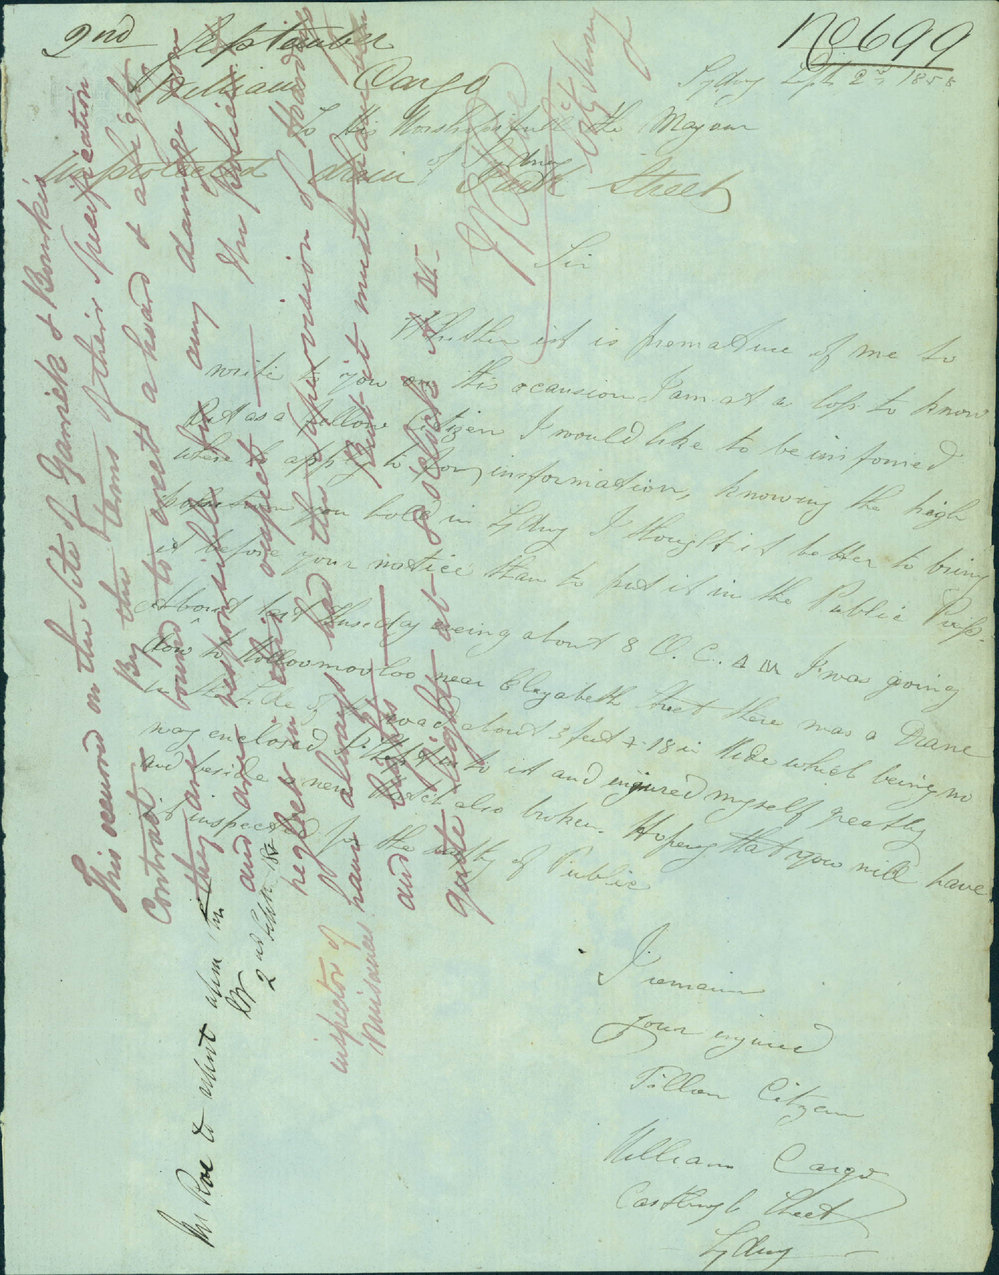 No 699
2nd September
William Cargo
Unprotected drain Park Street
Sydney Sept 2nd 1858
To His Worshipfull the Mayour
of Sydney
Sir
Whether it is premature of me to
write to you on this ocausion I am at a loss to know
But as a fellow Citizen I would like to be imformed
where to apply to for imformation, knowing the high
position you hold in Sydney I thought it better to bring
it before your notice than to put it in the Public Press.
About last Thuseday being about 8 O. C. A M I was going
down to Wolloomooloo near Elizabeth Street there was a Drane
in the side of the road about 3 feet & 18 in Wide which being no
way enclosed I fell in to it and injured myself greatly
and beside a new Watch also broken. Hoping that you will have
it inspected for the safty of Public
I remain
your injured
Fellow Citizen
William Cargo
Castlereagh Street
Sydney
This occurred on the Site of Garrick &
their Specification
Contract By the terms of
they are bound to erect a board & a light
and are responsible for any damage from
neglect in this respect — The police
have always had the supervision of
and lights — But it must have been
quite light at 8 oclock A M.
inspector of
Nuisances
Mr Roe to
2nd Sept 18